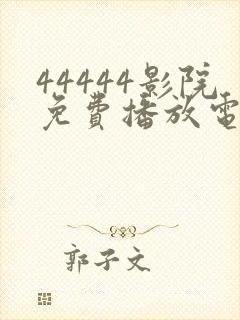 44444影院
免費播放電
郭子文